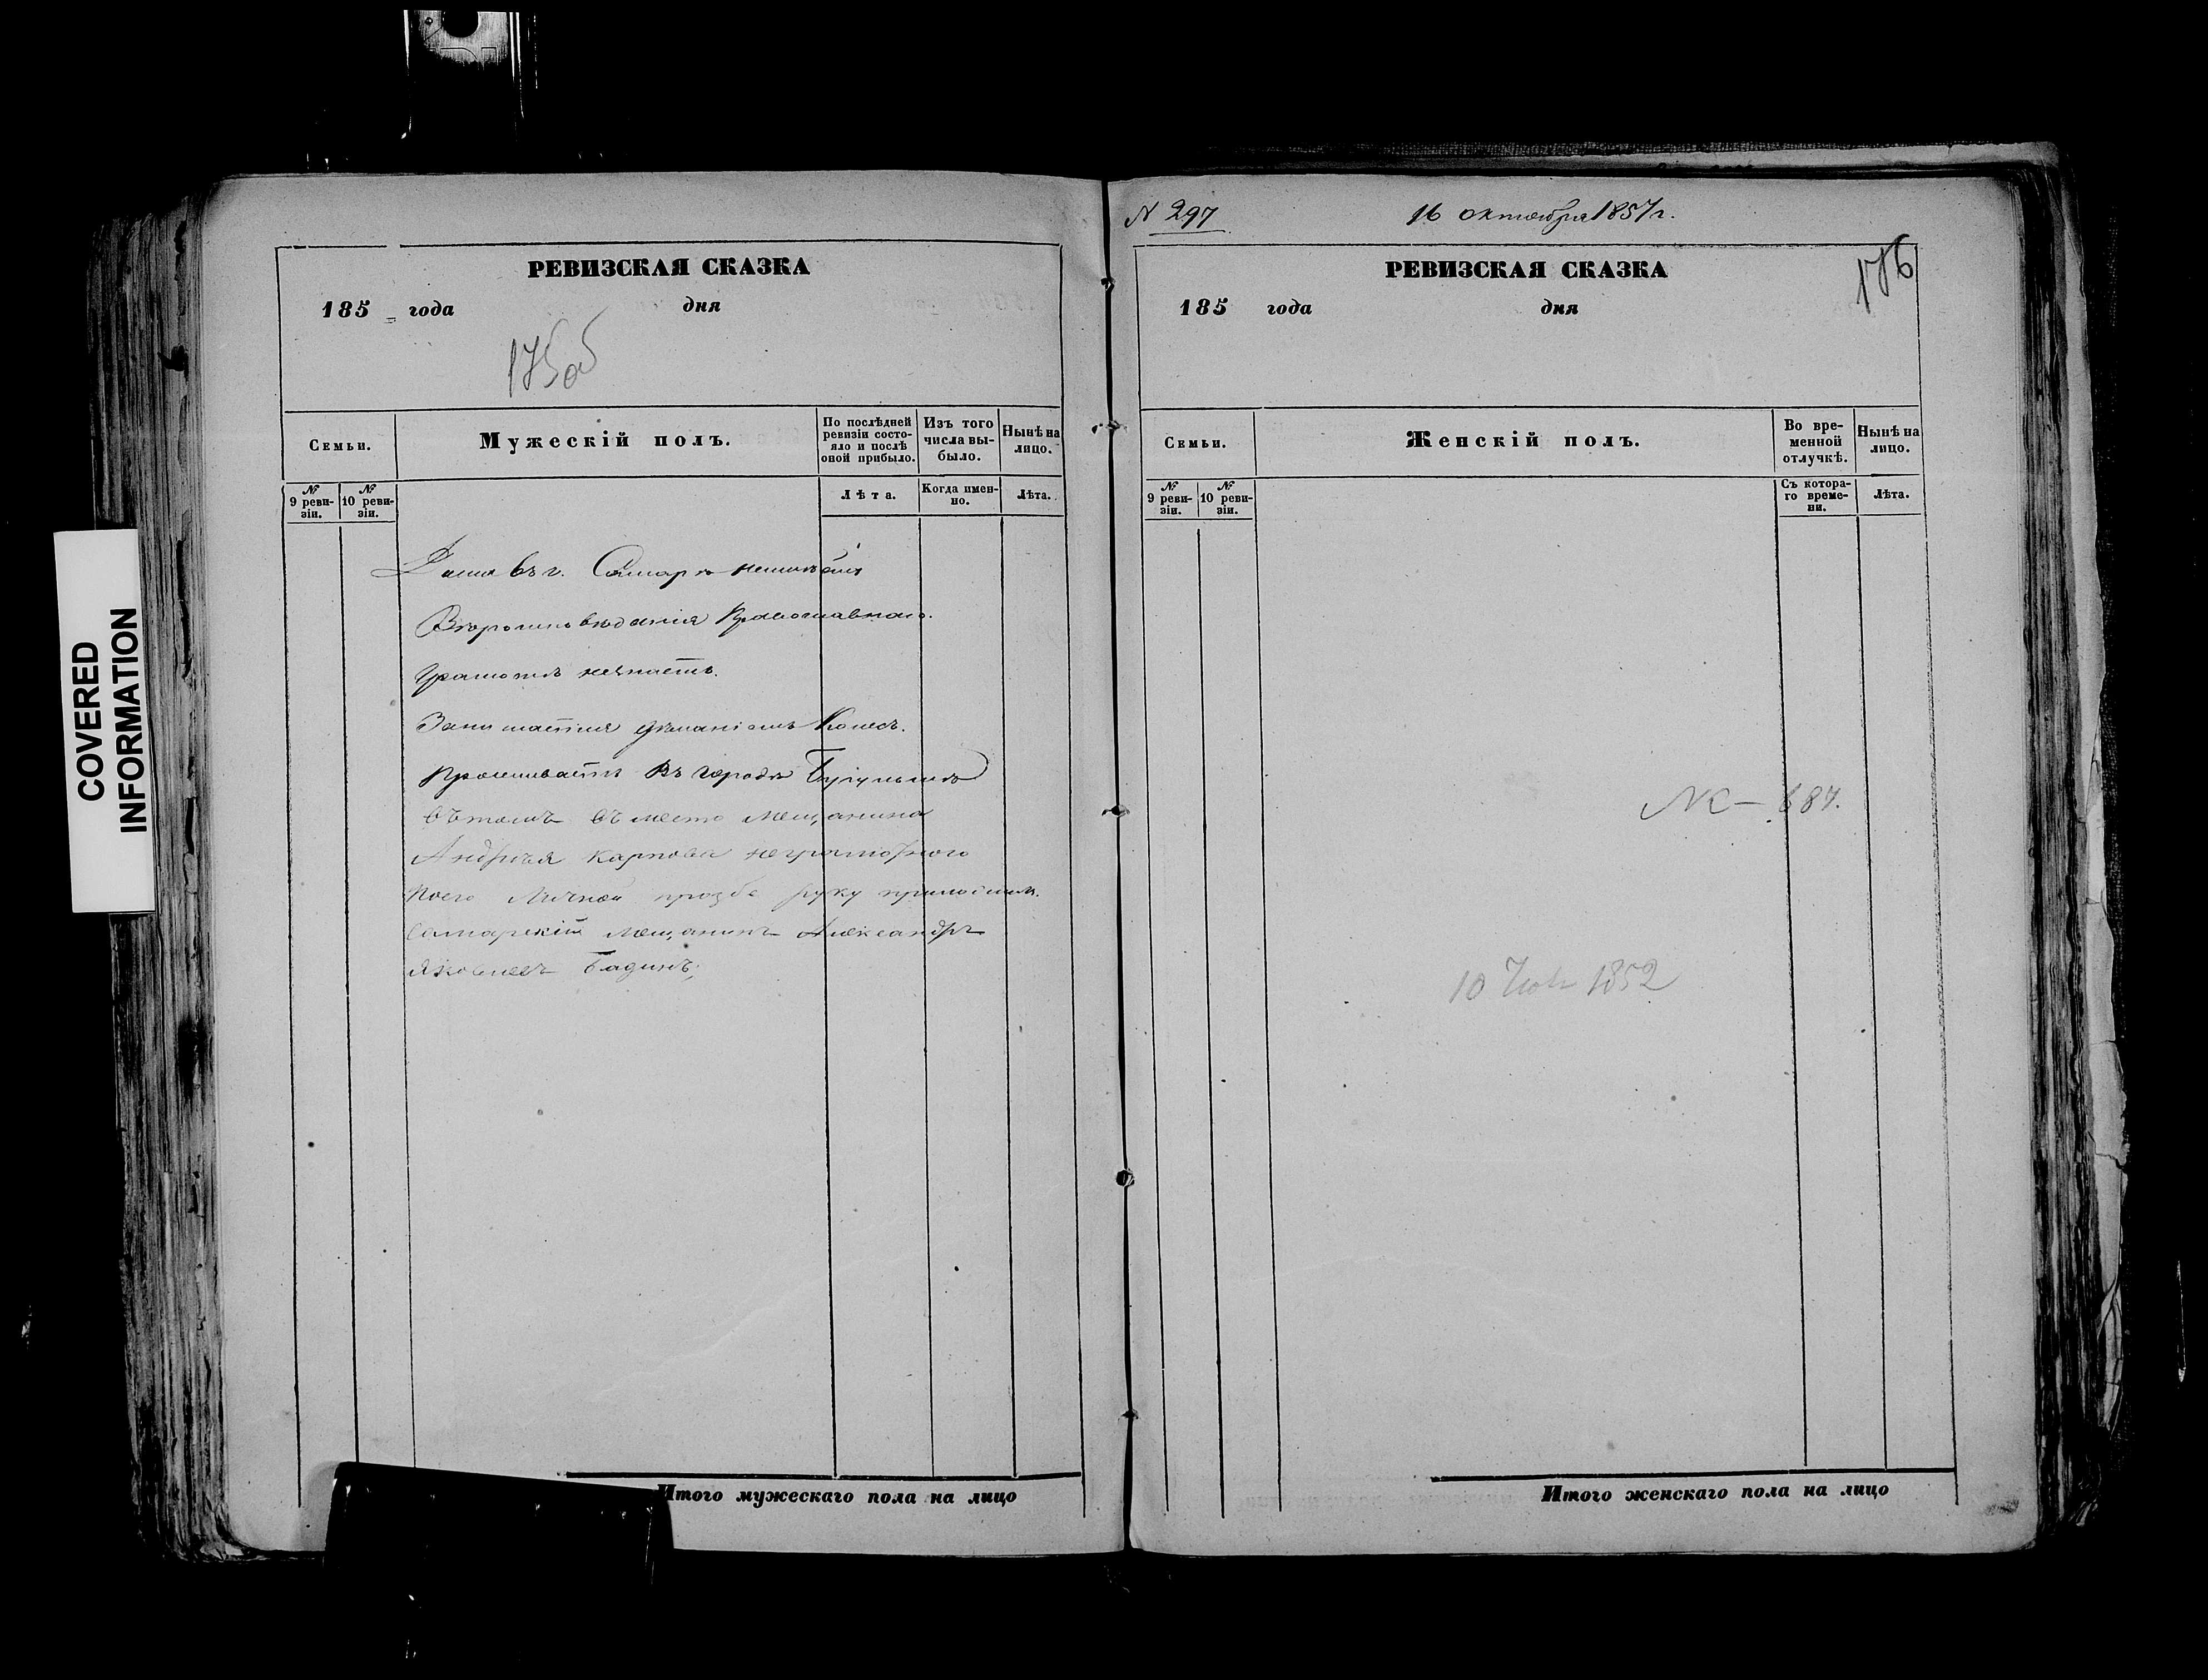 COVERED
INFORMATION
РЕВИЗСКАЯ СКАЗКА
185 года дня
175об
Семьи.
Мужескій полъ.
По послѣдней ревизіи состо-
яло и послѣ
оной прибыло.
Изъ того
числа вы-
было.
Нынѣ на
лицо.
№ 9 реви-
зіи.
№ 10 реви-
зіи.
Лѣта.
Когда имен-
но.
Лѣта.
Дома въ г. Самарѣ неимѣетъ
Вѣроисповѣданія Православнаго.
Грамотѣ незнаетъ.
Занимается дѣланіемъ Колесъ.
Проживаетъ Въ городѣ Бугульмѣ
Вътомъ въместо мещанина
Андрѣя Карпова неграмотного
поего личной прозбе руку приложилъ.
Самарскій мещанинъ Александръ
Яковлевъ Бадинъ;
Итого мужескаго пола на лицо
N 297
16 октября 1857 г.
РЕВИЗСКАЯ СКАЗКА
176
185 года дня
Семьи.
Женскій полъ.
Во вре-
менной
отлучкѣ.
Нынѣ на
лицо.
№ 9 реви-
зіи.
№ 10 реви-
зіи.
Съ котора-
го време-
ни.
Лѣта.
687.
10 1852
Итого женскаго пола на лицо